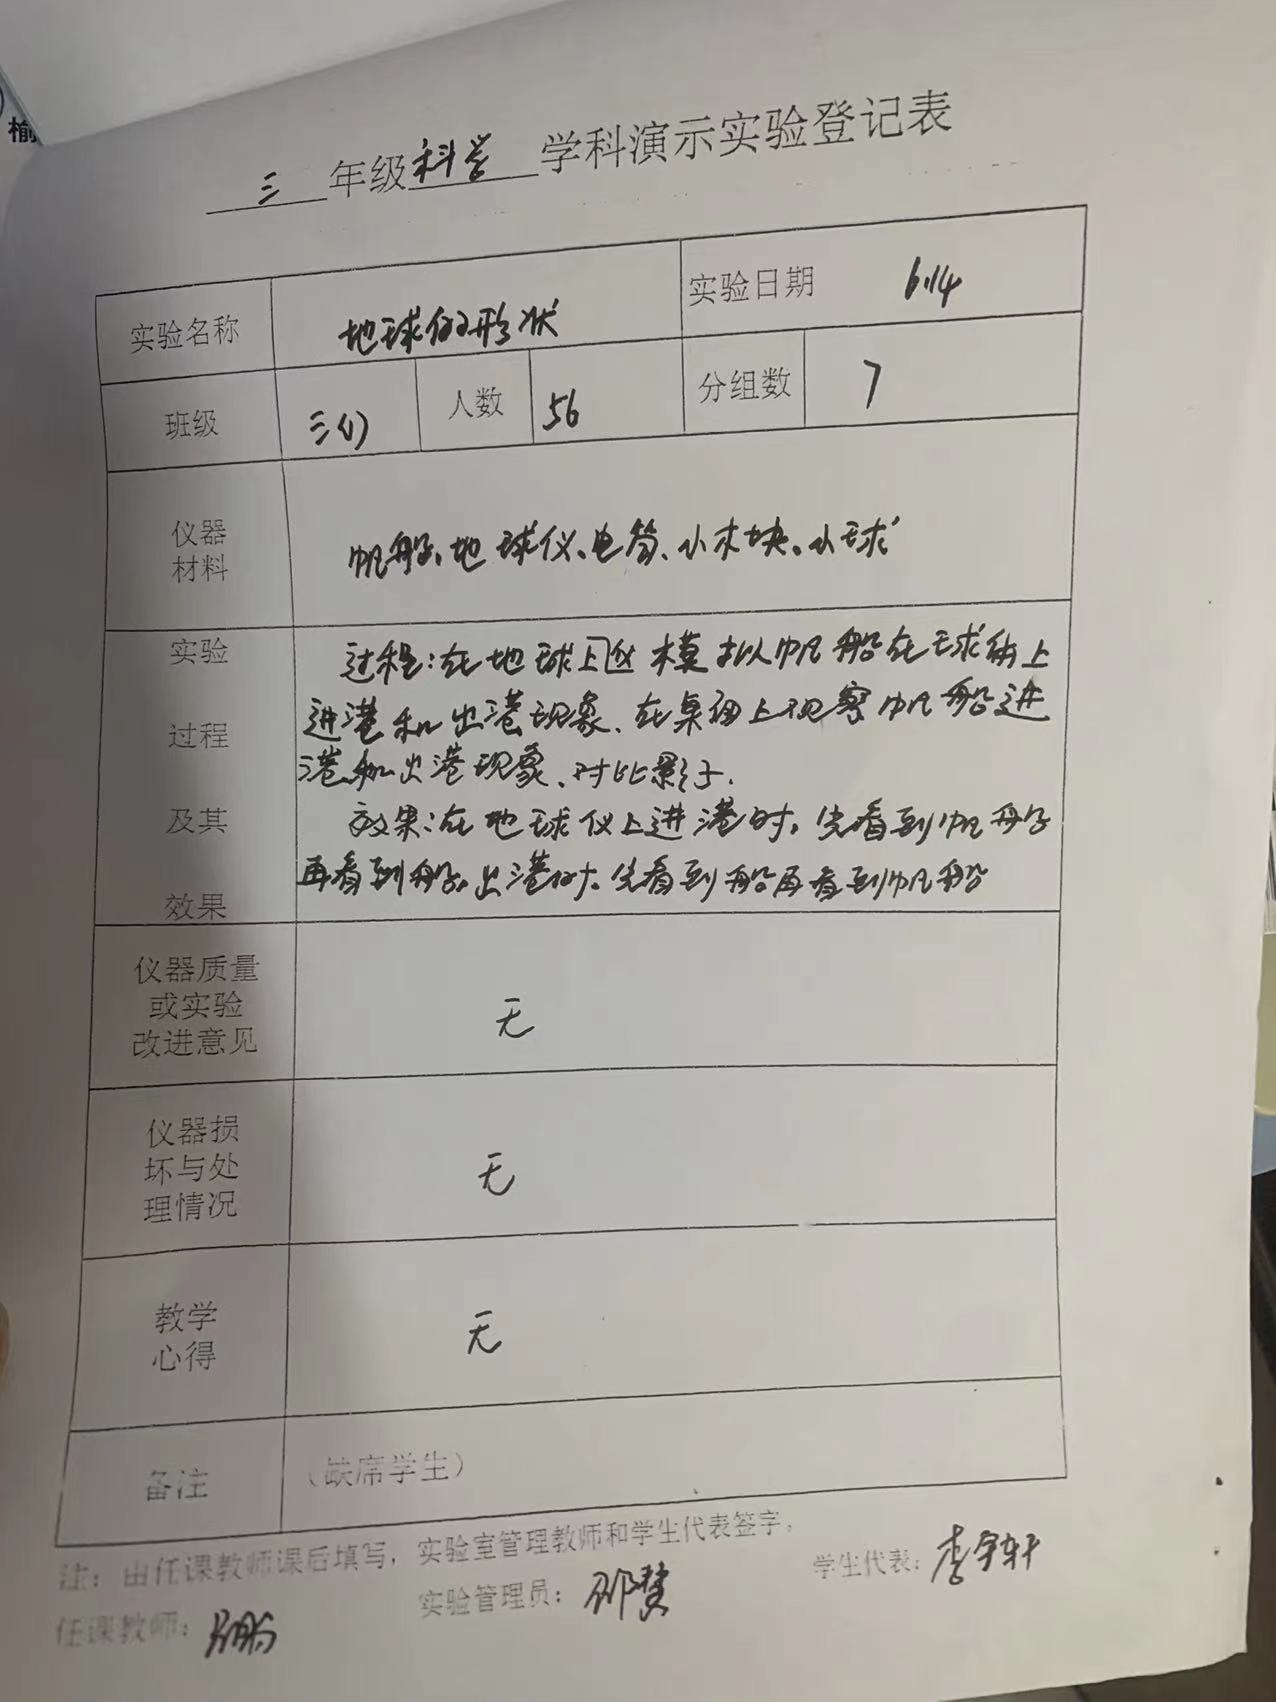 榆
三 年级 科学 学科演示实验登记表
实验名称 地球的形状 实验日期 6.14
班级 三(1) 人数 56 分组数 7
仪器
材料
帆船、地球仪、电筒、小木块、小球
实验
过程
及其
效果
过程:在地球上 模拟帆船在球体上
进港和出港现象、在桌面上观察帆船进
港和出港现象、对比影子.
效果:在地球仪上进港时,先看到帆船
再看到船,出港时,先看到船再看到帆船
仪器质量
或实验
改进意见
无
仪器损
坏与处
理情况
无
教学
心得
无
备注 (缺席学生)
注:由任课教师课后填写,实验室管理教师和学生代表签字。
任课教师: 实验管理员:邵慧 学生代表:李宇轩